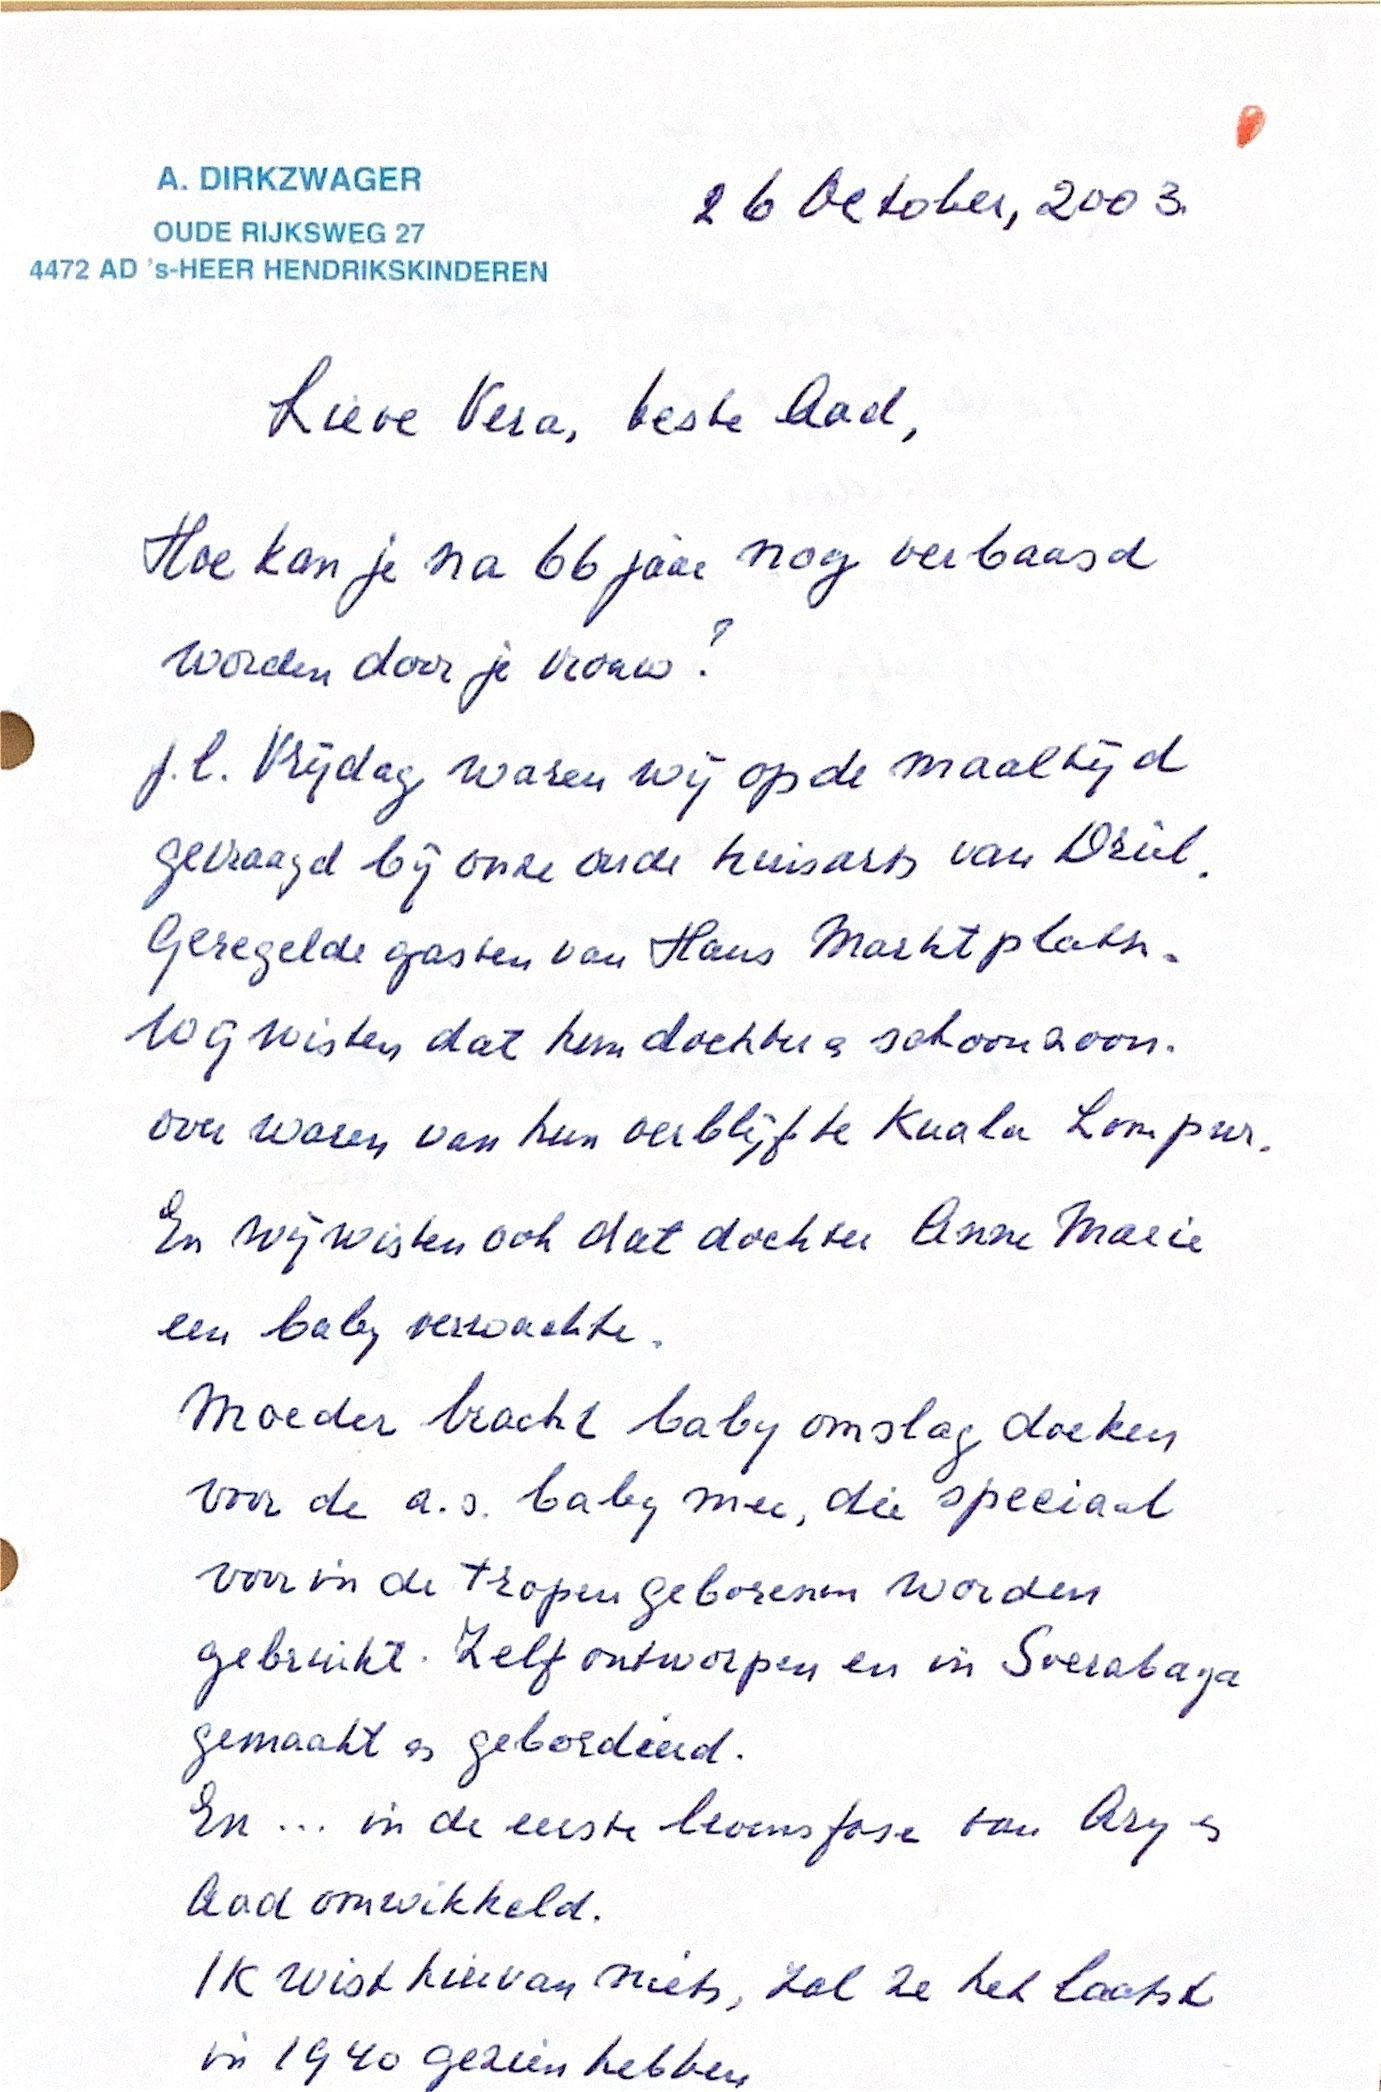 A. DIRKZWAGER
OUDE RIJKSWEG 27
4472 AD 's-HEER HENDRIKSKINDEREN
26 October, 2003.
Lieve Vera, beste Aad,
Hoe kan je na 66 jaar nog verbaasd
worden door je vrouw?
j.l. Vrijdag waren wij op de maaltijd
gevraagd bij onze oude huisarts van Driel.
Geregelde gasten van Hans Marktplatsn.
Wij wisten dat hun dochter en schoonzoon.
over waren van hun verblijf te Kuala Lompur.
En wij wisten ook dat dochter Anne Marie
een baby verwachte.
Moeder bracht baby omslag doeken
voor de a.s. baby mee, die speciaal
voor in de tropen geborenen worden
gebruikt. Zelf ontworpen en in Soerabaya
gemaakt en gebordierd.
En ... in de eerste levensfase van Ary en
Aad omwikkeld.
Ik wist hiervan niets, zal ze het laatst
in 1940 gezien hebben